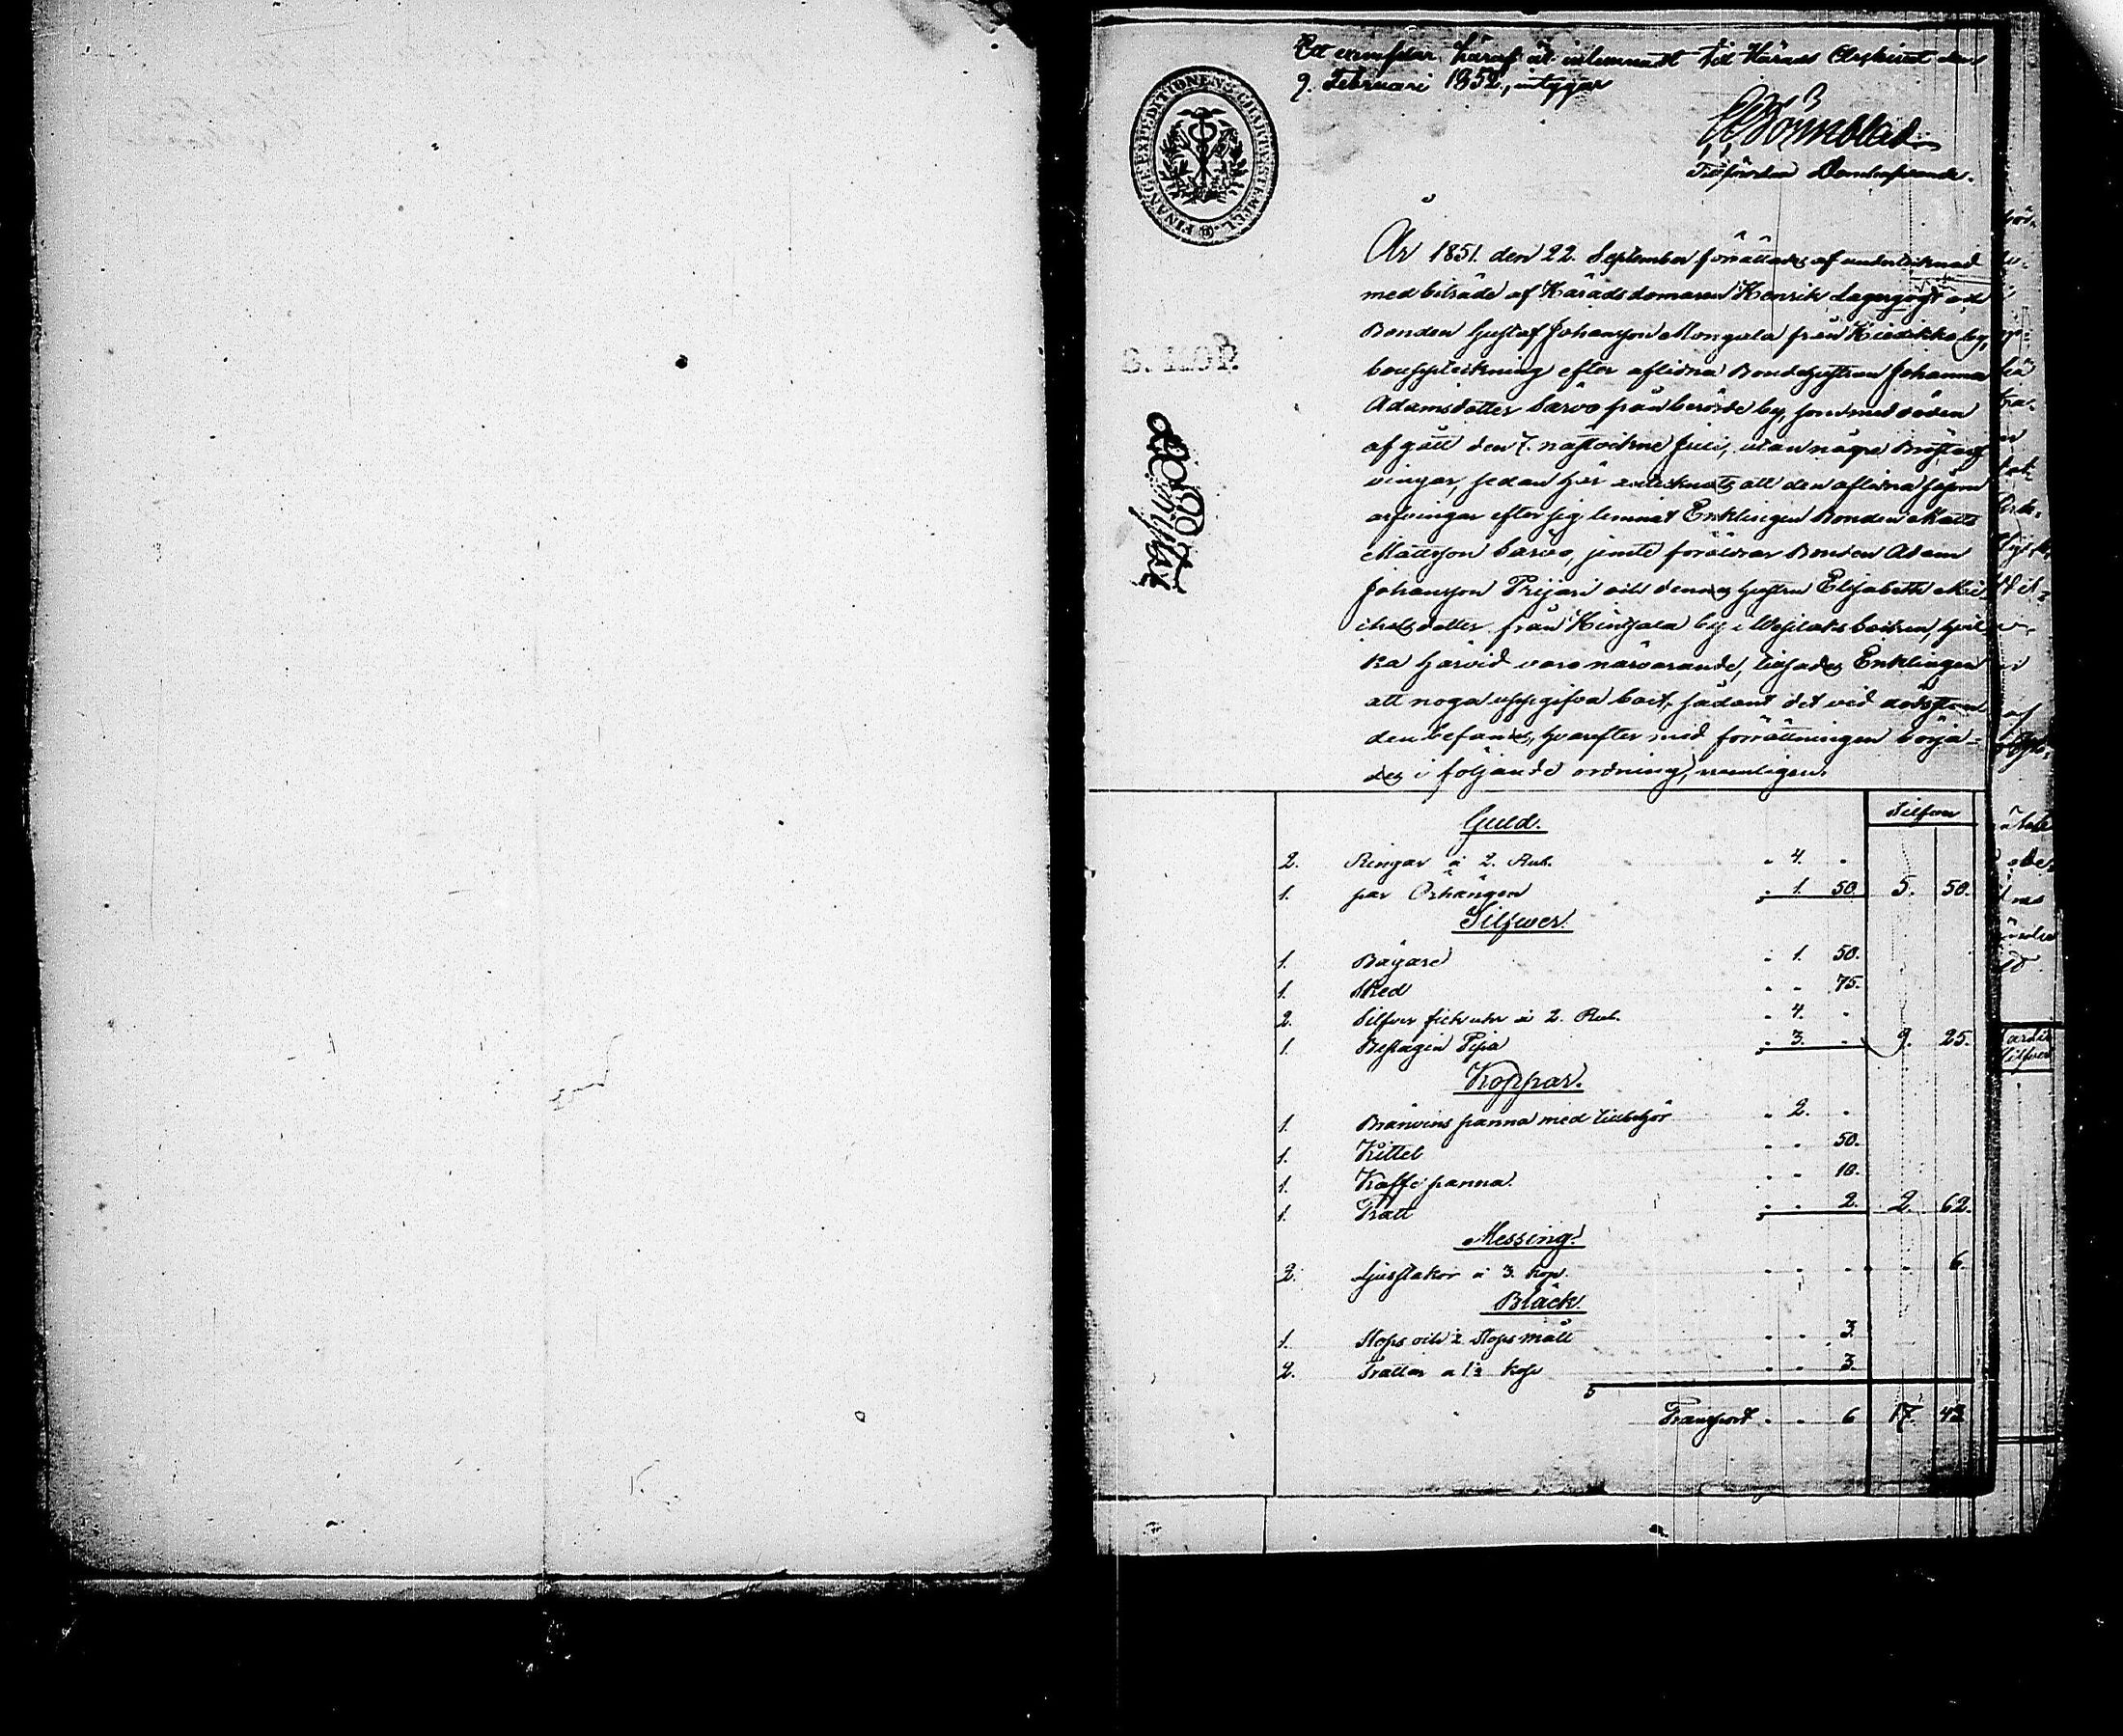 Ett exemplar häraf är inlemnadt till Härads Arkivet den
9. Februari 1852, intygar
Tillförordnad Domhafvande.
FINANCE EXPEDITIONENS CHARTÆ STEMPEL.
År 1851. den 22. September förrättades af undertecknad
med biträde af Häradsdomaren Henrik Lagerqvist och
Bonden Gustaf Johansson Mongala från Kiedikko by,
bouppteckning efter aflidna Bondehustrun Johanna
Adamsdotter Sarvo från berörde by, som med döden
afgått den 7. nästvikne Juli, utan några Bröstarf
vingar, sedan här antecknats att den aflidna såsom
arfvingar efter sig lemnat Enklingen Bonden Matts
Mattsson Sarvo, jemte föräldrar Bonden Adam
Johansson Prijari och dennes hustru Elisabeth Mi-
chelsdotter från Hinjala by i Wesilaks socken, hvil
ka härvid voro närvarande, tillsades Enklingen
att noga uppgifva boet, sådant det vid dödsstun
den befanns, hvarefter med förrättningen börja-
des i följande ordning, nemligen.
Silfver
Guld.
2. Ringar à 2. Rub. 4.
1. par Örhängen 1. 50. 5. 50.
Silfwer.
1. Bägare 1. 50.
1. Sked 75.
2. Silfver fickuhr à 2. Rub. 4.
1. Beslagen Pipa 3. 9. 25.
Koppar.
1. Bränvins panna med tillbehör 2.
1. Kittel 50.
1. Kaffe panna. 10.
1. Tratt 2. 2 62.
Messing.
2. Ljusstakar à 3. Kop. 6.
Bläck.
1. Stops och ½ Stops mått 3.
2. Trattar a 1½ Kop 3.
Transport 6 17. 43